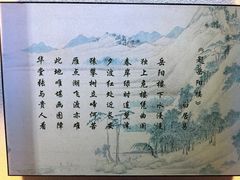 《題岳陽樓》
白居易
岳陽樓下水漫漫
獨上危樓憑曲闌
春岸綠時連夢澤
夕波紅處近長安
猿攀樹立啼何苦
雁點湖飛渡亦難
此地唯堪畫圖障
華堂張與貴人看